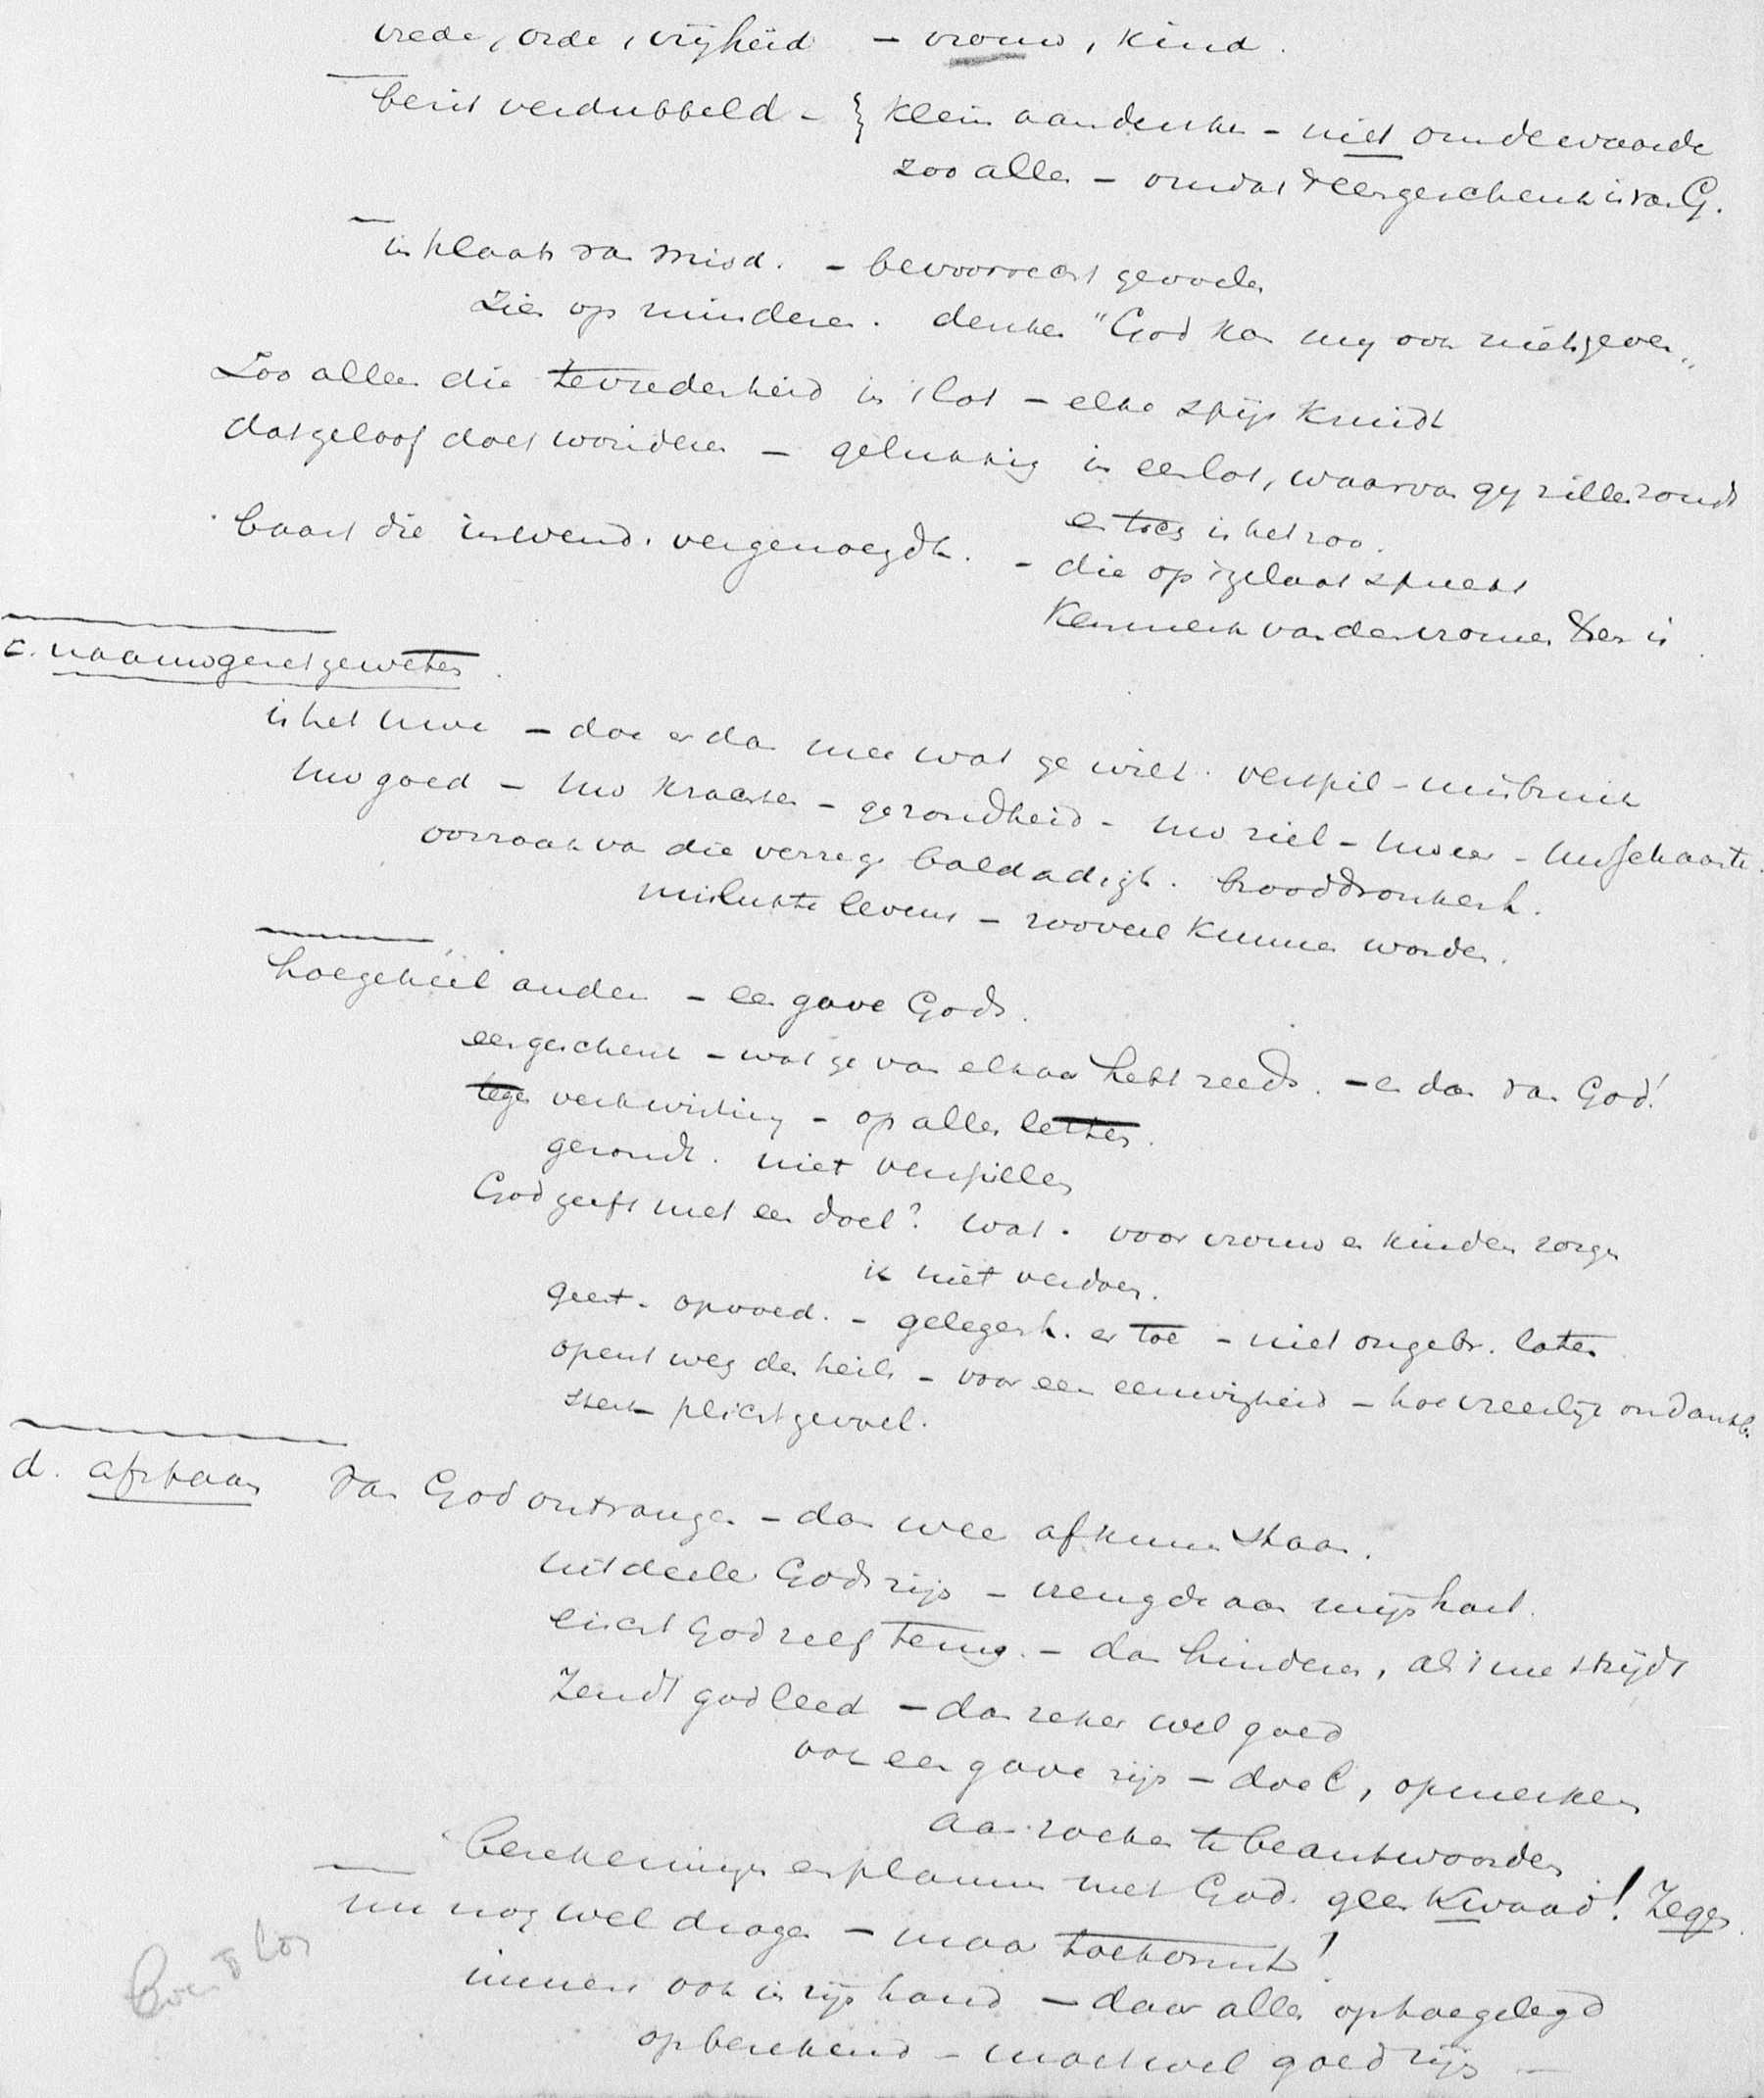 vrede, orde, vrijheid – vrouw, kind.
bezit verdubbeld – { klein aandenken – niet om de waarde
zoo alles – omdat 't een geschenk is van G.
in plaats van misd. – bevoorrecht gevoelen
Zien op minderen. denken "God kan mij ook niets geven"
Zoo alleen die tevredenheid in 't lot – elke spijs kruidt
dat geloof doet wonderen – gelukkig in een lot, waarvan gij rillen zoudt
en toch is het zoo.
baart die inwend. vergenoegdh. – die op 't gelaat spreekt
Kenmerk van den vromen Xen is
c. nauwgezet geweten.
is het uwe – doe er dan mee wat ge wilt. verspil – misbruik
uw goed – uw krachten – gezondheid – uw ziel – uw eer – uw schaarste.
oorzaak van die baldadigh. brooddronkenh.
mislukte levens – zooveel kunnen worden.
hoe geheel anders – een gave Gods.
een geschenk – wat ge van elkaar hebt reeds. – en dan van God!
tegen verkwisting – op alles letten.
gezondh. niet verspillen
God geeft met een doel? wat. voor vrouw en kinderen zorgen
ik niet verdoen.
geest. opvoed. – gelegenh. er toe – niet ongebr. laten
opent weg des heils – voor een eeuwigheid – hoe vreeselijk ondankb.
sterk plichtgevoel.
d. afstaan van God ontvangen – dan wee af kunnen staan.
uitdeeler Gods zijn – vreugde aan mijn hart.
eischt God zelf terug – dan hinderen, als 't me strijdt
Zendt god leed – dan zeker wel goed
ook een gave zijn – doel, opmerken
aan zoeken te beantwoorden
berekeningen en plannen met God. geen kwaad! Zegen.
nu nog wel dragen – maar toekomst!
immers ook in zijn hand – daar alles op toegelegd
op berekend – moet wel goed zijn –